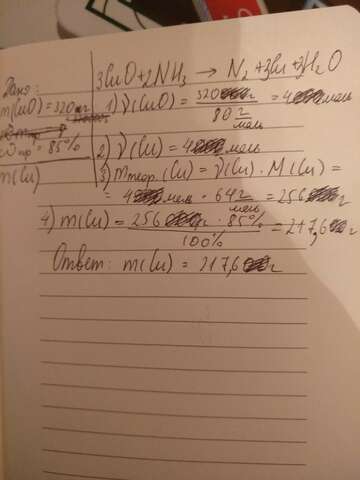 Дано:
m(CuO)=320г
ωпр=85%
m(Cu)
3CuO+2NH₃ → N₂+3Cu+3H₂O
1) ν(CuO) = 320г / 80 г/моль = 4 моль
2) ν(Cu) = 4 моль
3) mтеор.(Cu) = ν(Cu) · M(Cu) =
= 4 моль · 64 г/моль = 256 г
4) m(Cu) = 256 г · 85% / 100% = 217,6 г
Ответ: m(Cu) = 217,6 г